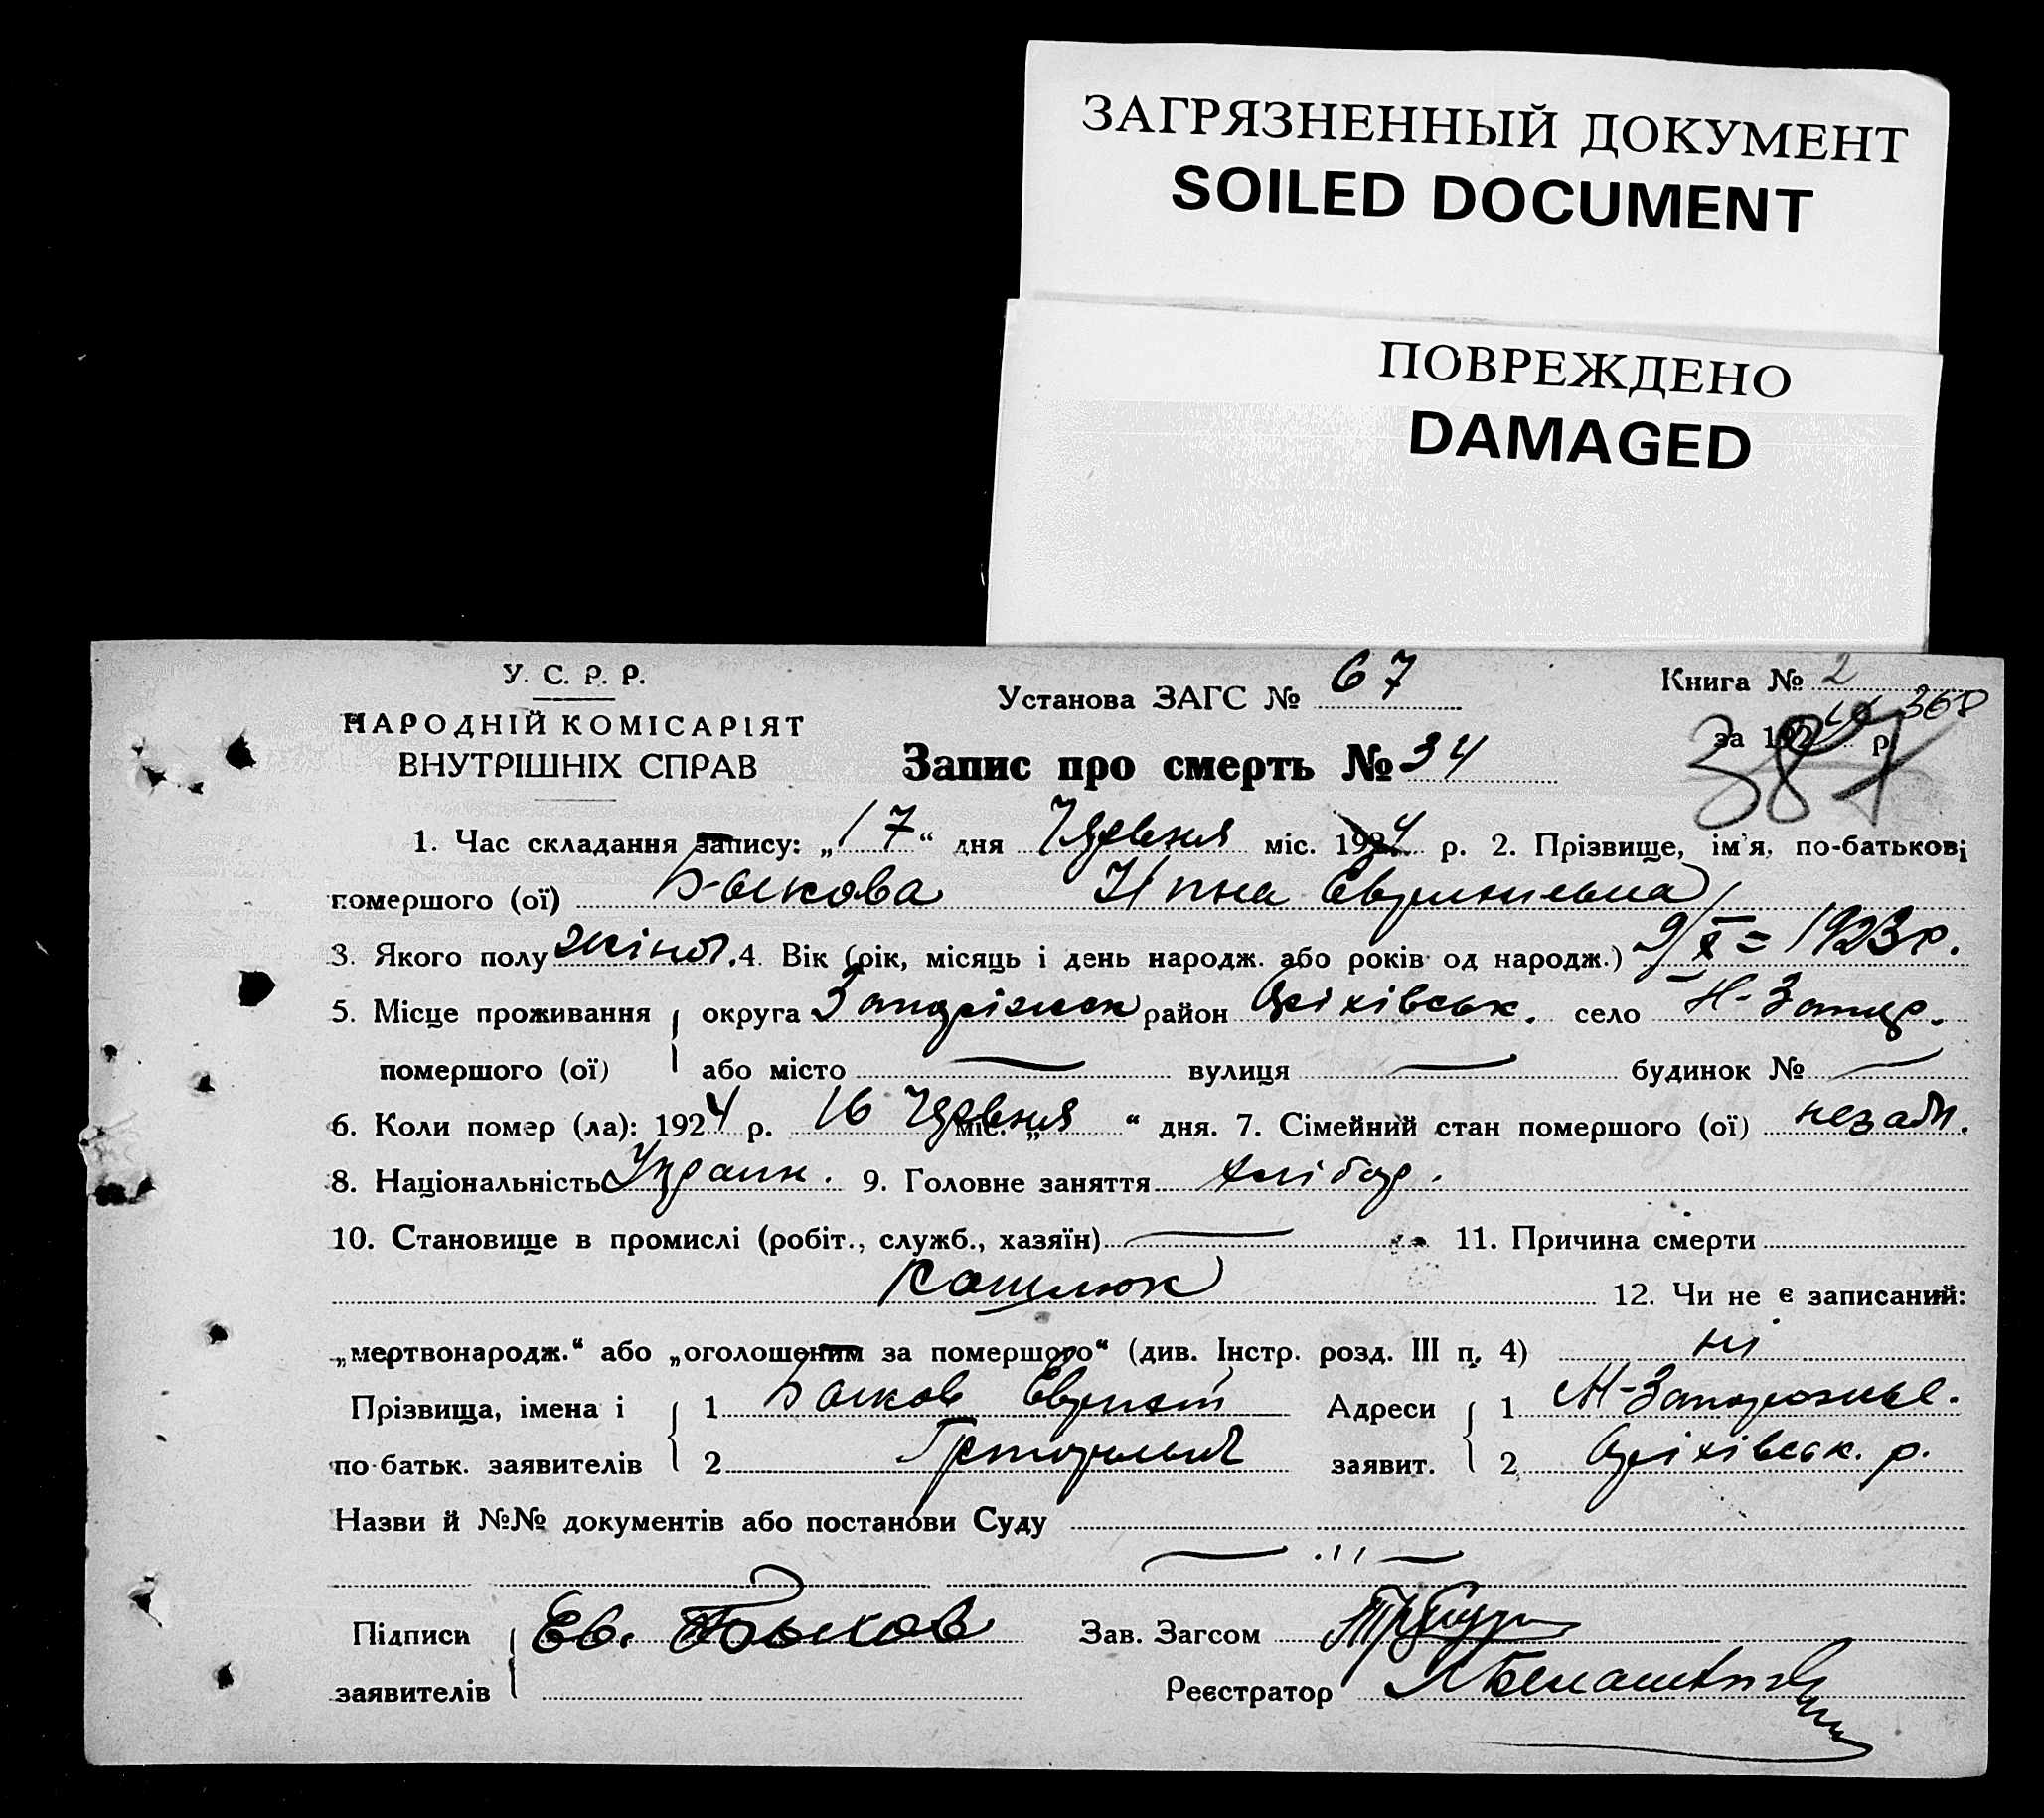 ЗАГРЯЗНЕННЫЙ ДОКУМЕНТ
SOILED DOCUMENT
ПОВРЕЖДЕНО
DAMAGED
У. С. Р. Р.
НАРОДНІЙ КОМІСАРІЯТ
ВНУТРІШНІХ СПРАВ
Установа ЗАГС № 67
Запис про смерть № 34
Книга № 2
за 192 р.
387
1. Час складання запису: „17“ дня Червня міс. 1924 р. 2. Прізвище, ім'я, по-батькові
помершого (ої) Быкова Нина
3. Якого полу жіноч. 4. Вік (рік, місяць і день народж. або років од народж.) 9/X = 1923 р.
5. Місце проживання округа Запоріжськ район Оріхівськ. село
помершого (ої) або місто — вулиця — будинок № —
6. Коли помер (ла): 1924 р. 16 Червня міс. „ “ дня. 7. Сімейний стан помершого (ої)
8. Національність Украин. 9. Головне заняття хлібор.
10. Становище в промислі (робіт., служб., хазяїн) — 11. Причина смерти
Кашлюк 12. Чи не є записаний:
„мертвонародж.“ або „оголошеним за помершого“ (див. Інстр. розд. III п. 4) ні
Прізвища, імена і 1 Быков Адреси 1
по-батьк. заявителів 2 заявит. 2 Оріхівськ. р.
Назви й №№ документів або постанови Суду
— „ —
Підписи Ев. Быков Зав. Загсом
заявителів Реєстратор